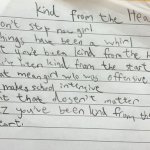 Kind from the Hea
on't stop new girl
hings have been a whirl
t have been kind from the h
ve been kind from the start
at mean girl who was offensive
makes school intensive
t that dosen't matter
uz you've been kind from the
eart.